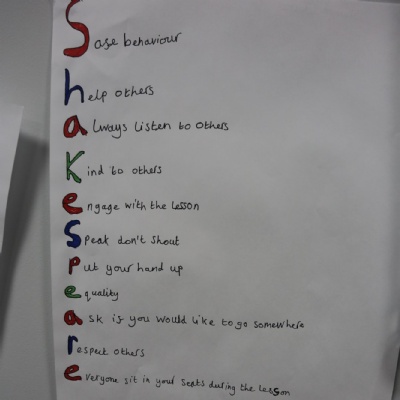 Sase behaviour
help others
always listen to others
Kind to others
engage with the lesson
Speak don't shout
Put your hand up
equality
ask is you would like to go somewhere
respect others
everyone sit in your seats during the lesson